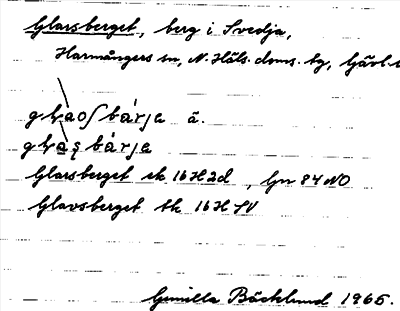 Glarsberget, berg i Svedja,
Harmångers sn, N. Häls. doms. bg, Gävl.
bárja ä.
bárja
Glarsberget ek 16H2d, Gn 84 NO
Glavsberget tk 16H SV
Gunilla Bäcklund 1965.